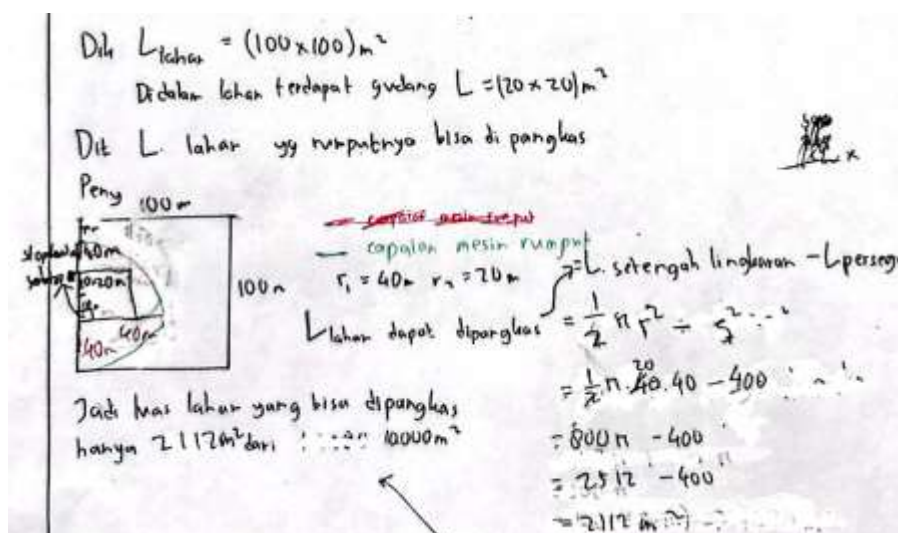 Dik L lahan = (100x100) m²
Didalam lahan terdapat gudang L = (20x20) m²
Dit L. lahan yg rumputnya bisa di pangkas
Peny
100m
40m
20m
40m
40m
100m
capaian mesin rumput
r₁ = 40m r₂ = 20m
L lahan dapat dipangkas
= L. setengah lingkaran - L perseg
= 1/2 π r² - s²
= 1/2 π . 40 . 40 - 400
20
= 800 π - 400
= 2512 - 400
= 2112 m²
Jadi luas lahan yang bisa dipangkas
hanya 2112 m² dari 10000 m²
x